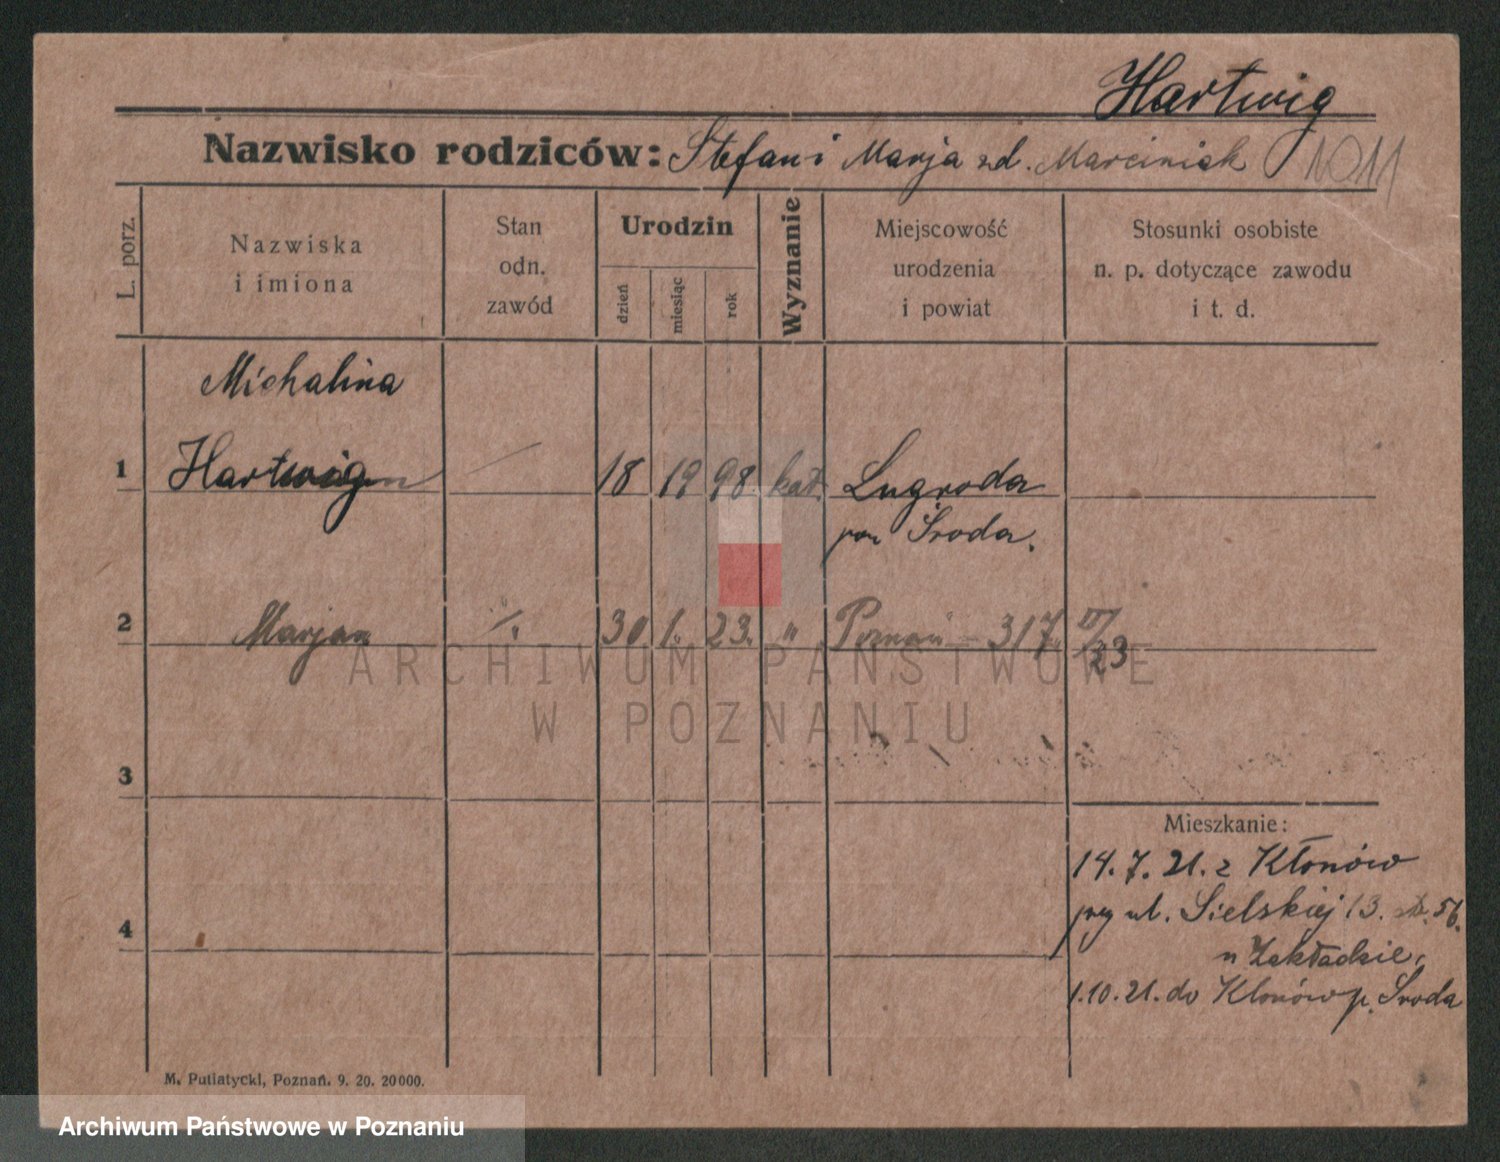 Hartwig
Nazwisko rodziców: Stefan i Marja zd. Marciniak
1011
L. porz.
Nazwiska
i imiona
Stan
odn.
zawód
Urodzin
dzień
miesiąc
rok
Wyznanie
Miejscowość
urodzenia
i powiat
Stosunki osobiste
n. p. dotyczące zawodu
i t. d.
Michalina
1 Hartwig 18 19 98 kat. Lugroda
pow Środa.
2 Marjan 30 1. 23. " Poznań - 317. IV/23
ARCHIWUM PAŃSTWOWE
W POZNANIU
3
Mieszkanie:
14. 7. 21. z Kłonów
przy ul. Sielskiej 13. 56.
4
w Zakładzie.
1.10.21. do Kłonów p. Środa
M. Putiatycki, Poznań. 9. 20. 20000.
Archiwum Państwowe w Poznaniu